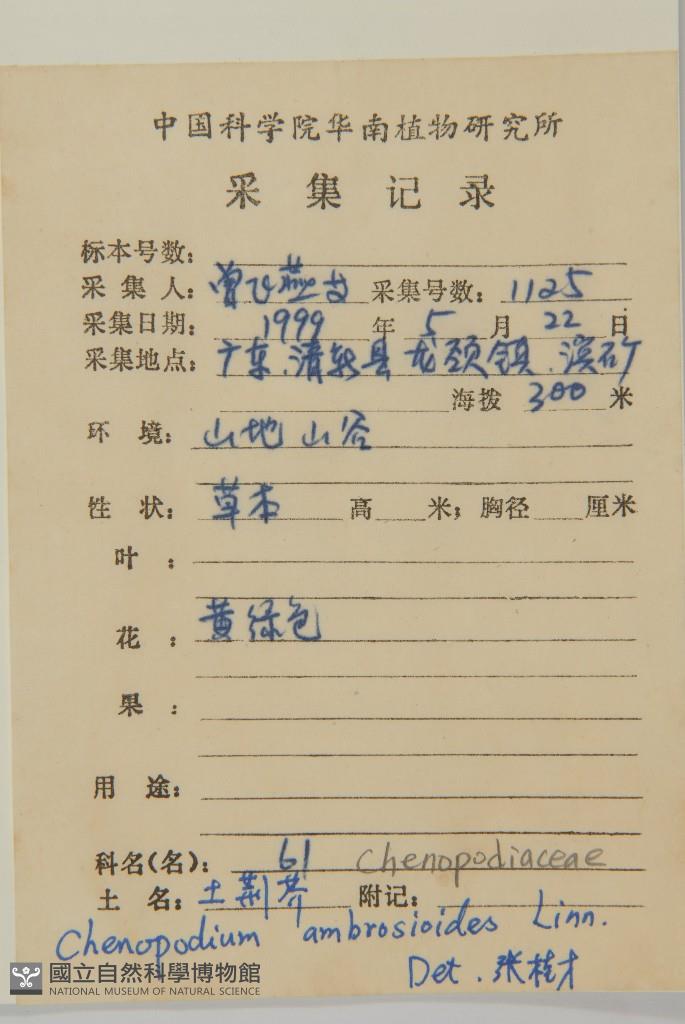 中国科学院华南植物研究所
采集记录
标本号数:
采集人: 曾飞燕 采集号数: 1125
采集日期: 1999 年 5 月 22 日
采集地点: 广东.清新县龙颈镇.
海拨 300 米
环境: 山地 山谷
性状: 草本 高 米; 胸径 厘米
叶:
花: 黄绿色
果:
用途:
科名(名): 61 Chenopodiaceae
土名: 土荆芥 附记:
Chenopodium ambrosioides Linn.
Det. 张桂才
國立自然科學博物館
NATIONAL MUSEUM OF NATURAL SCIENCE